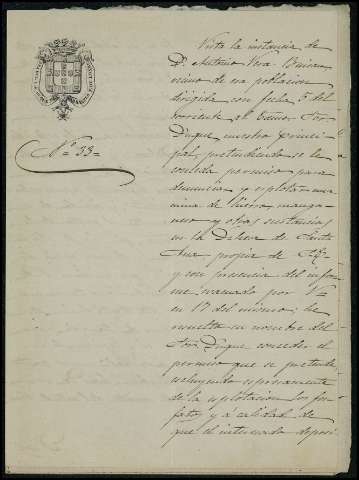 Nº 33=
Vista la instancia de
Dn. Antonio Vera
vecino de esa poblacion
dirigida con fecha 5 del
corriente al Excmo. Sor.
Duque nuestro princi-
pal, pretendiendo se le
conceda permiso para
denunciar y esplotar una
mina de hierro manga-
neso y otras sustancias
en la Dehesa de Santa
Ana propia de S.E.
y con presencia del infor-
me evacuado por V.
en 17 del mismo; he
resuelto en nombre del
Sor. Duque conceder el
permiso que se pretende,
escluyendo espresamente
de la esplotacion los fos-
fatos y á calidad de
que el interesado deposi-